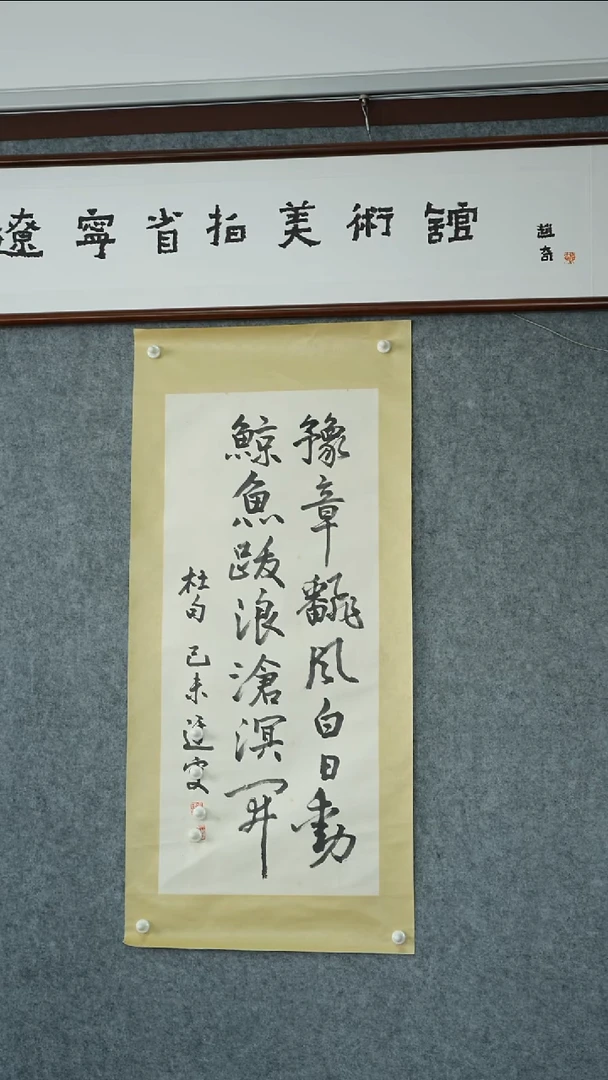 遼寧省拍美術館
趙奇
豫章翻風白日動
鯨魚跋浪滄溟開
杜句 己未